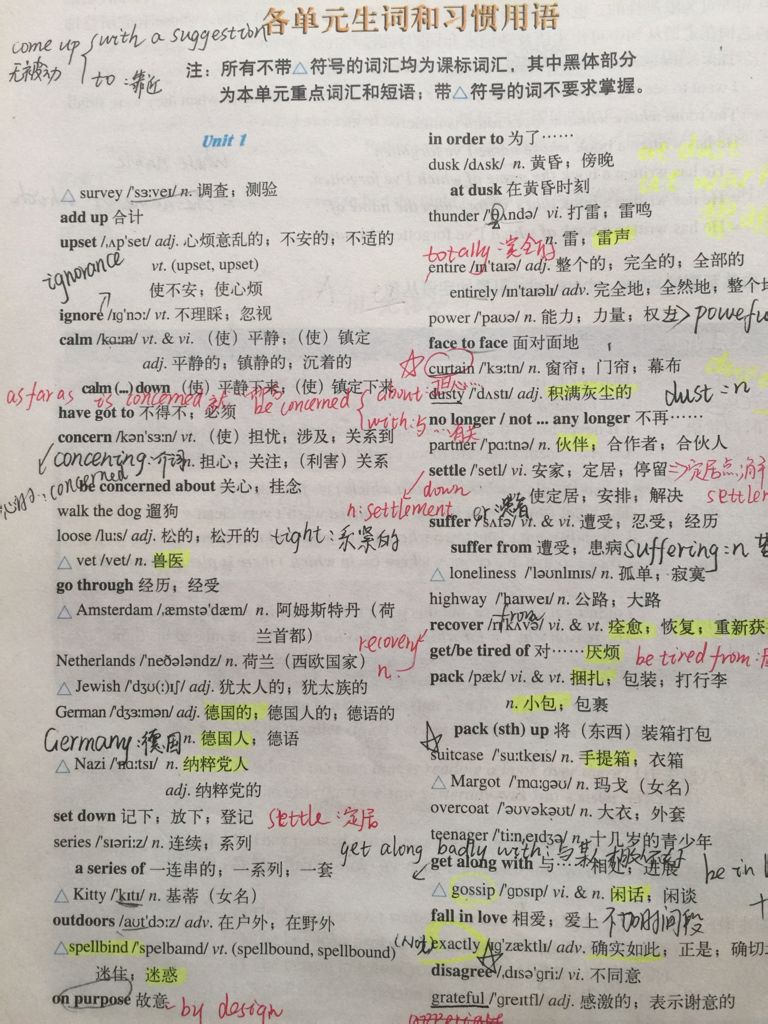 各单元生词和习惯用语
come up with a suggestion
无被动
to：靠近
注：所有不带△符号的词汇均为课标词汇，其中黑体部分
为本单元重点词汇和短语；带△符号的词不要求掌握。
Unit 1
△ survey /'sɜːveɪ/ n. 调查；测验
add up 合计
upset /ˌʌp'set/ adj. 心烦意乱的；不安的；不适的
vt. (upset, upset)
使不安；使心烦
ignorance
ignore /ɪg'nɔː/ vt. 不理睬；忽视
calm /kɑːm/ vt. & vi. （使）平静；（使）镇定
adj. 平静的；镇静的；沉着的
calm (...) down （使）平静下来；（使）镇定下来
as far as is concerned
be concerned about：担心
with：与…有关
have got to 不得不；必须
concern /kən'sɜːn/ vt. （使）担忧；涉及；关系到
n. 担心；关注；（利害）关系
concerned
be concerned about 关心；挂念
walk the dog 遛狗
n：settlement
loose /luːs/ adj. 松的；松开的 tight：系紧的
△ vet /vet/ n. 兽医
go through 经历；经受
△ Amsterdam /ˌæmstə'dæm/ n. 阿姆斯特丹（荷
兰首都）
recovery
n.
Netherlands /'neðələndz/ n. 荷兰（西欧国家）
△ Jewish /'dʒʊ(ː)ɪʃ/ adj. 犹太人的；犹太族的
German /'dʒɜːmən/ adj. 德国的；德国人的；德语的
Germany：德国
n. 德国人；德语
△ Nazi /'nɑːtsɪ/ n. 纳粹党人
adj. 纳粹党的
set down 记下；放下；登记 settle：定居
series /'sɪəriːz/ n. 连续；系列
get along badly with：
a series of 一连串的；一系列；一套
△ Kitty /'kɪtɪ/ n. 基蒂（女名）
outdoors /aʊt'dɔːz/ adv. 在户外；在野外
△spellbind /'spelbaɪnd/ vt. (spellbound, spellbound)
迷住；迷惑
on purpose 故意 by design
in order to 为了……
dusk /dʌsk/ n. 黄昏；傍晚
at dusk 在黄昏时刻
thunder /'θʌndə/ vi. 打雷；雷鸣
n. 雷；雷声
totally：完全的
entire /ɪn'taɪə/ adj. 整个的；完全的；全部的
entirely /ɪn'taɪəlɪ/ adv. 完全地；全然地；整个地
power /'paʊə/ n. 能力；力量；权力
face to face 面对面地
curtain /'kɜːtn/ n. 窗帘；门帘；幕布
dusty /'dʌstɪ/ adj. 积满灰尘的 dust=n
no longer / not ... any longer 不再……
partner /'pɑːtnə/ n. 伙伴；合作者；合伙人
settle /'setl/ vi. 安家；定居；停留
down
vt. 使定居；安排；解决
suffer /'sʌfə/ vt. & vi. 遭受；忍受；经历
suffer from 遭受；患病 suffering=n
△ loneliness /'ləʊnlɪnɪs/ n. 孤单；寂寞
highway /'haɪweɪ/ n. 公路；大路
from
recover /rɪ'kʌvə/ vi. & vt. 痊愈；恢复；重新获
get/be tired of 对……厌烦 be tired from：
pack /pæk/ vi. & vt. 捆扎；包装；打行李
n. 小包；包裹
pack (sth) up 将（东西）装箱打包
suitcase /'suːtkeɪs/ n. 手提箱；衣箱
△ Margot /'mɑːgəʊ/ n. 玛戈（女名）
overcoat /'əʊvəkəʊt/ n. 大衣；外套
teenager /'tiːneɪdʒə/ n. 十几岁的青少年
get along with 与……相处；进展
△ gossip /'gɒsɪp/ vi. & n. 闲话；闲谈
fall in love 相爱；爱上 不加时间段
(Not)
exactly /ɪg'zæktlɪ/ adv. 确实如此；正是；确切
disagree /ˌdɪsə'griː/ vi. 不同意
grateful /'greɪtfl/ adj. 感激的；表示谢意的